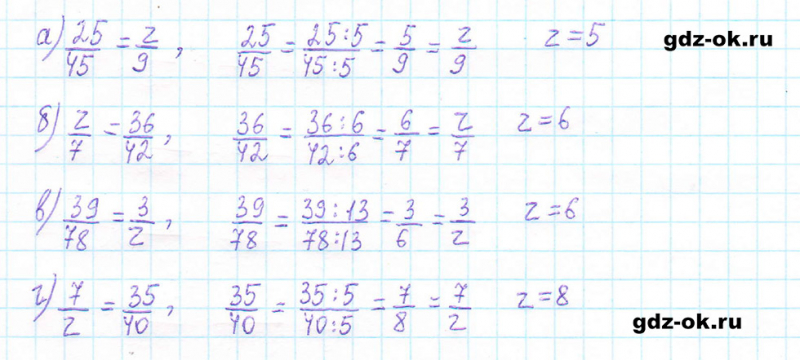 а) 25/45 = z/9, 25/45 = 25:5/45:5 = 5/9 = z/9 z=5
gdz-ok.ru
б) z/7 = 36/42, 36/42 = 36:6/42:6 = 6/7 = z/7 z=6
в) 39/78 = 3/z, 39/78 = 39:13/78:13 = 3/6 = 3/z z=6
г) 7/z = 35/40, 35/40 = 35:5/40:5 = 7/8 = 7/z z=8
gdz-ok.ru